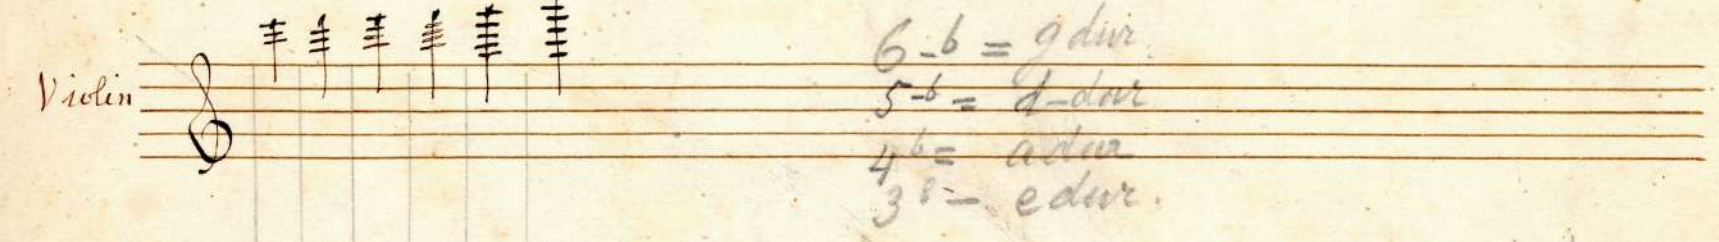 Violin
6-b = g dur.
5-b = d-dur
4 b = a dur
3 b - e dur.